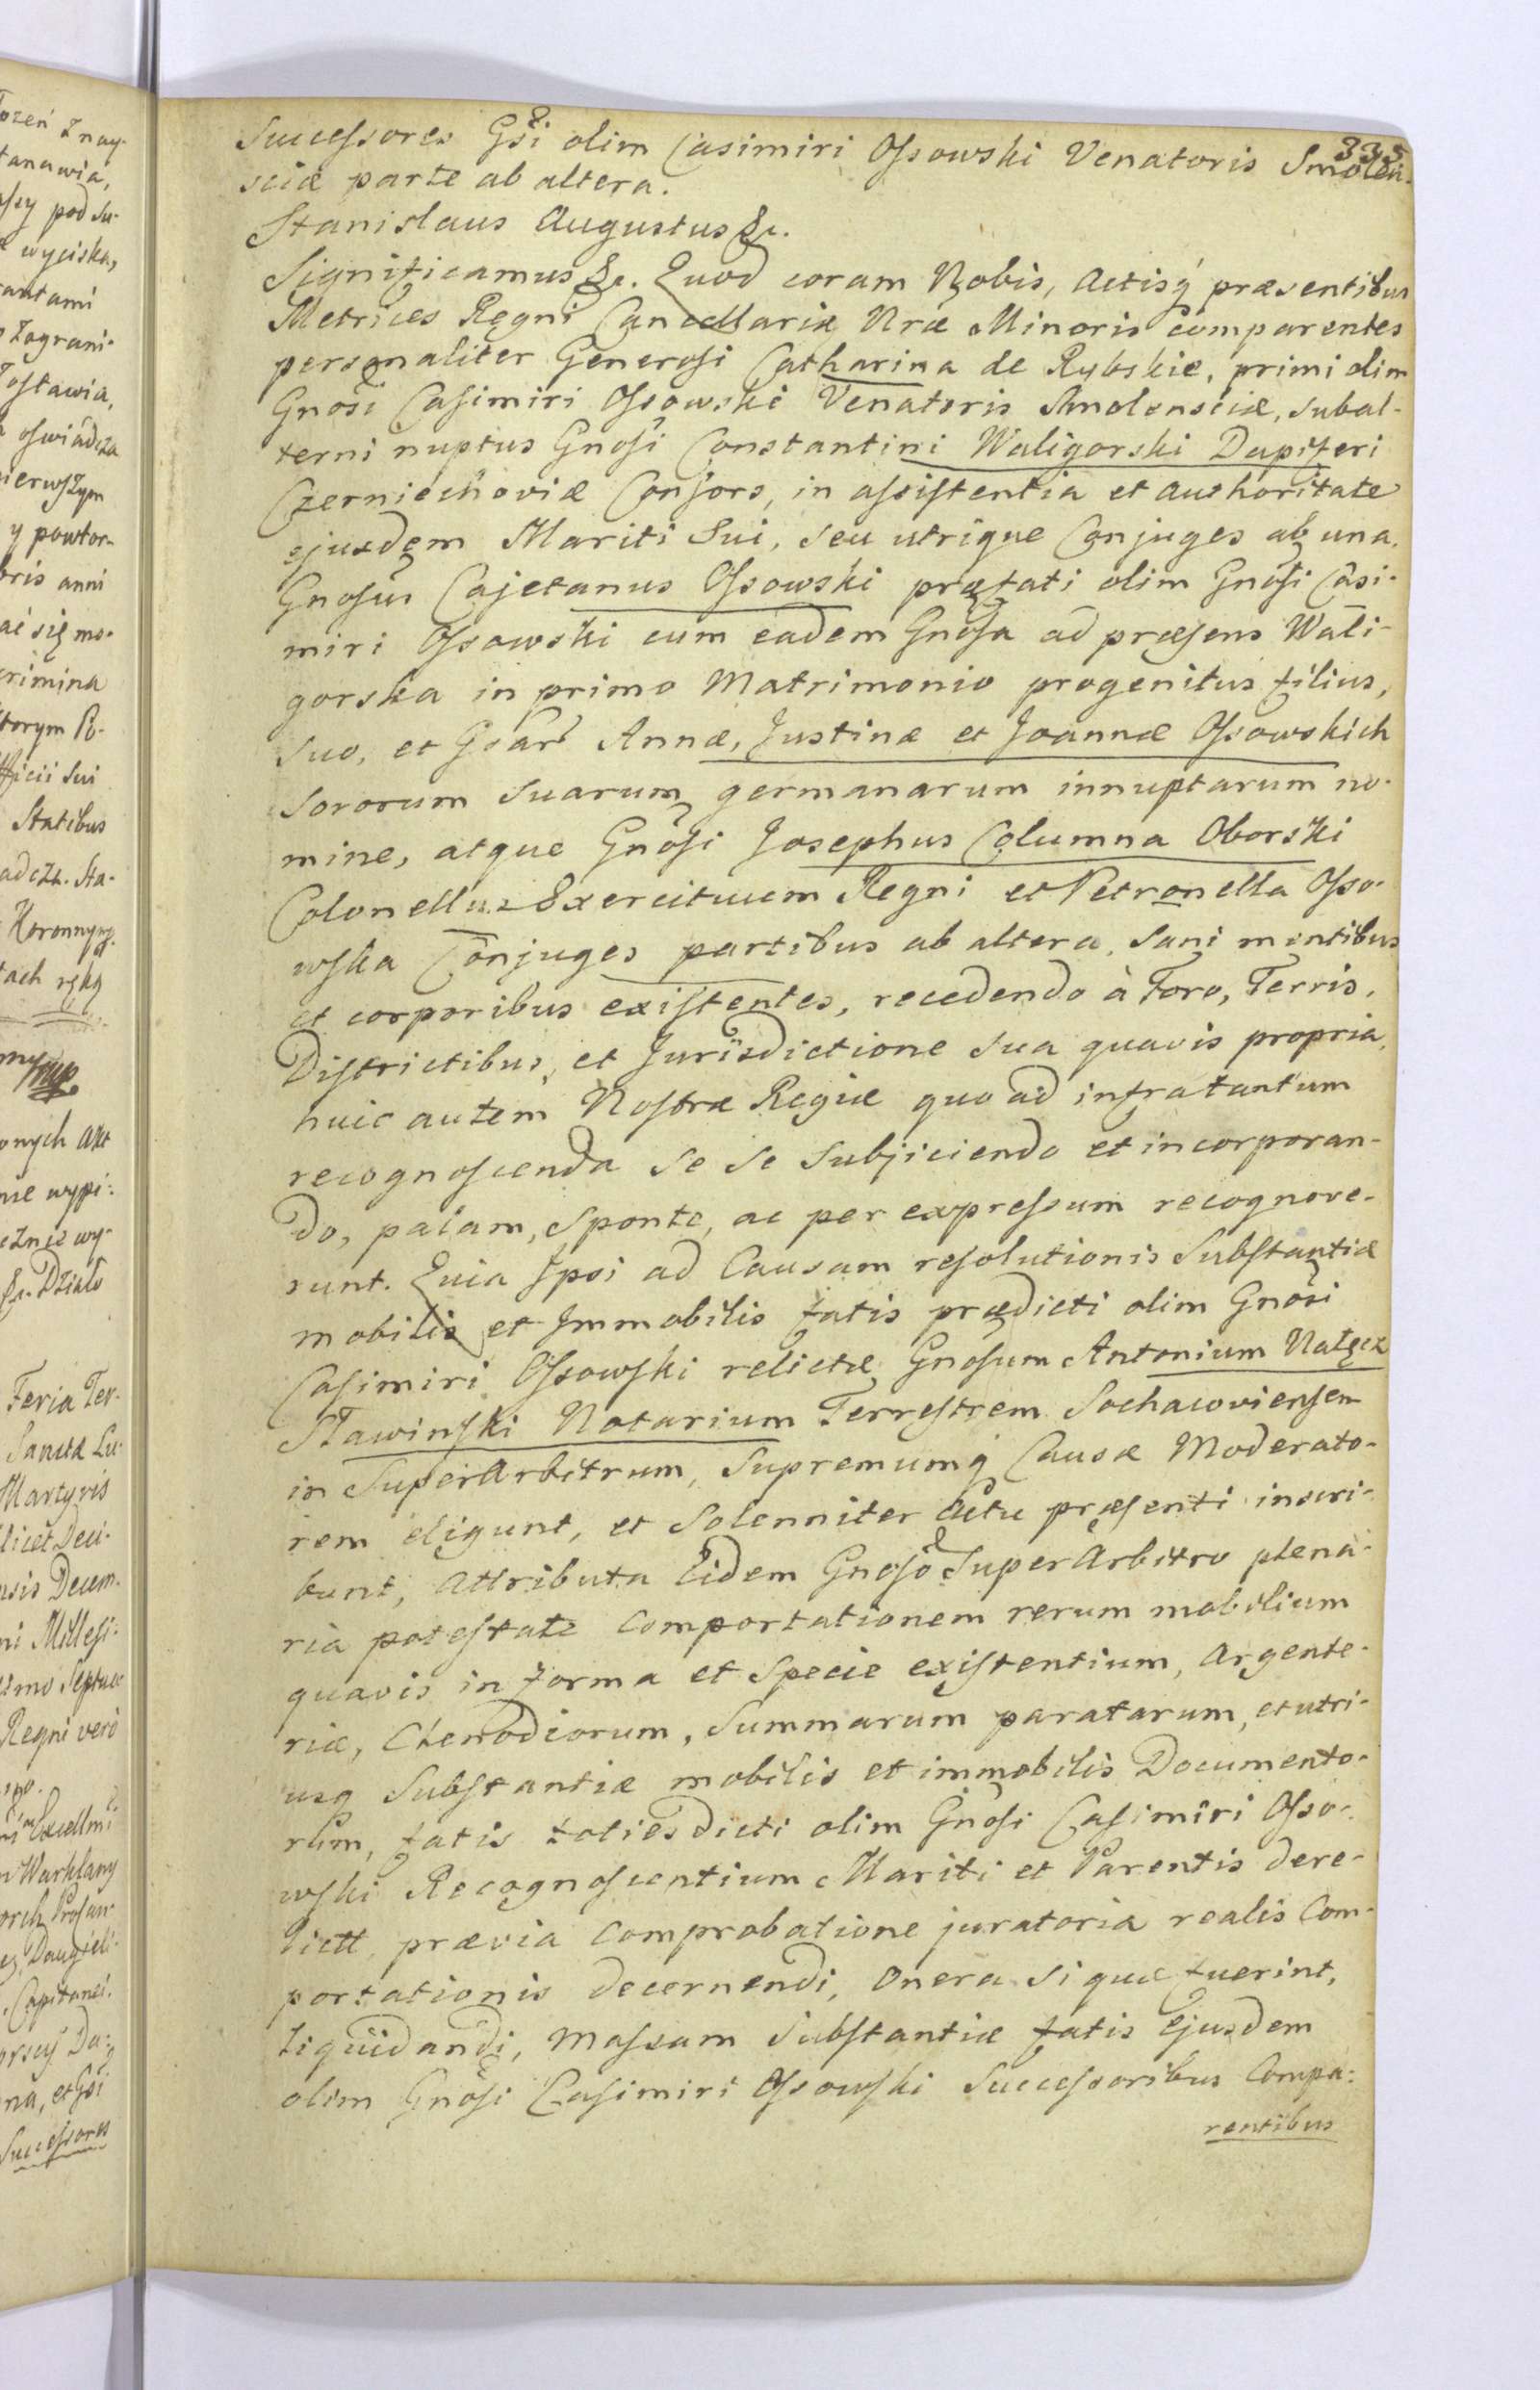 335
Successores Gsi olim Casimiri Ossowski Venatoris Smolen-
sciæ parte ab altera.
Stanislaus Augustus &c.
Significamus &c. Quod coram Nobis, Actisq́ præsentibus
Metrices Regni Cancellariæ Nræ Minoris comparentes
personaliter Generosi Catharina de Rybskie, primi olim
Gnosi Casimiri Ossowski Venatoris Smolensciæ, subal-
terni nuptus Gnosi Constantini Waligorski Dapiferi
Czerniechoviæ Consors, in assistentia et authoritate
ejusdem Mariti Sui, seu utrique Conjuges ab una.
Gnosus Cajetanus Ossowski præfati olim Gnosi Casi-
miri Ossowski cum eadem Gnosa ad præsens Wali-
gorska in primo Matrimonio progenitus filius,
suo, et Gsar Annæ, Justinæ et Joannæ Ossowskich
Sororum suarum germanarum innuptarum no-
mine, atque Gnosi Josephus Columna Oborski
Colonellus Exercituum Regni et Petronella Osso-
wska Conjuges partibus ab altera, Sani mentibus
et corporibus existentes, recedendo à Foro, Terris,
Districtibus, et Jurisdictione sua quavis propria,
huic autem Nostræ Regiæ quo ad infratantum
recognoscenda se se Subjiciendo et incorporan-
do, palam, Sponte, ac per expressum recognove-
runt. Quia Ipsi ad Causam resolutionis Substantiæ
mobilis et Immobilis fatis prædicti olim Gnosi
Casimiri Ossowski relictæ Gnosum Antonium Nałęcz
Sławinski Notarium Terrestrem Sochacoviensem
in SuperArbitrum, Supremumq́ Causæ Moderato-
rem eligunt, et Solenniter Actu præsenti inscri-
bunt, Attributa Eidem Gnoso SuperArbitro plena-
ria potestate Comportationem rerum mobilium
quavis in forma et Specie existentium, Argente-
riæ, Clenodiorum, Summarum paratarum, et utri-
usq Substantiæ mobilis et immobilis Documento-
rum, fatis toties dicti olim Gnosi Casimiri Osso-
wski Recognoscentium Mariti et Parentis dere-
lictt, prævia Comprobatione juratoria realis Com-
portationis decernendi, Onera si quæ fuerint,
liquidandi, Massam Substantiæ fatis Ejusdem
olim Gnosi Casimiri Ossowski Successoribus Compa-
rentibus